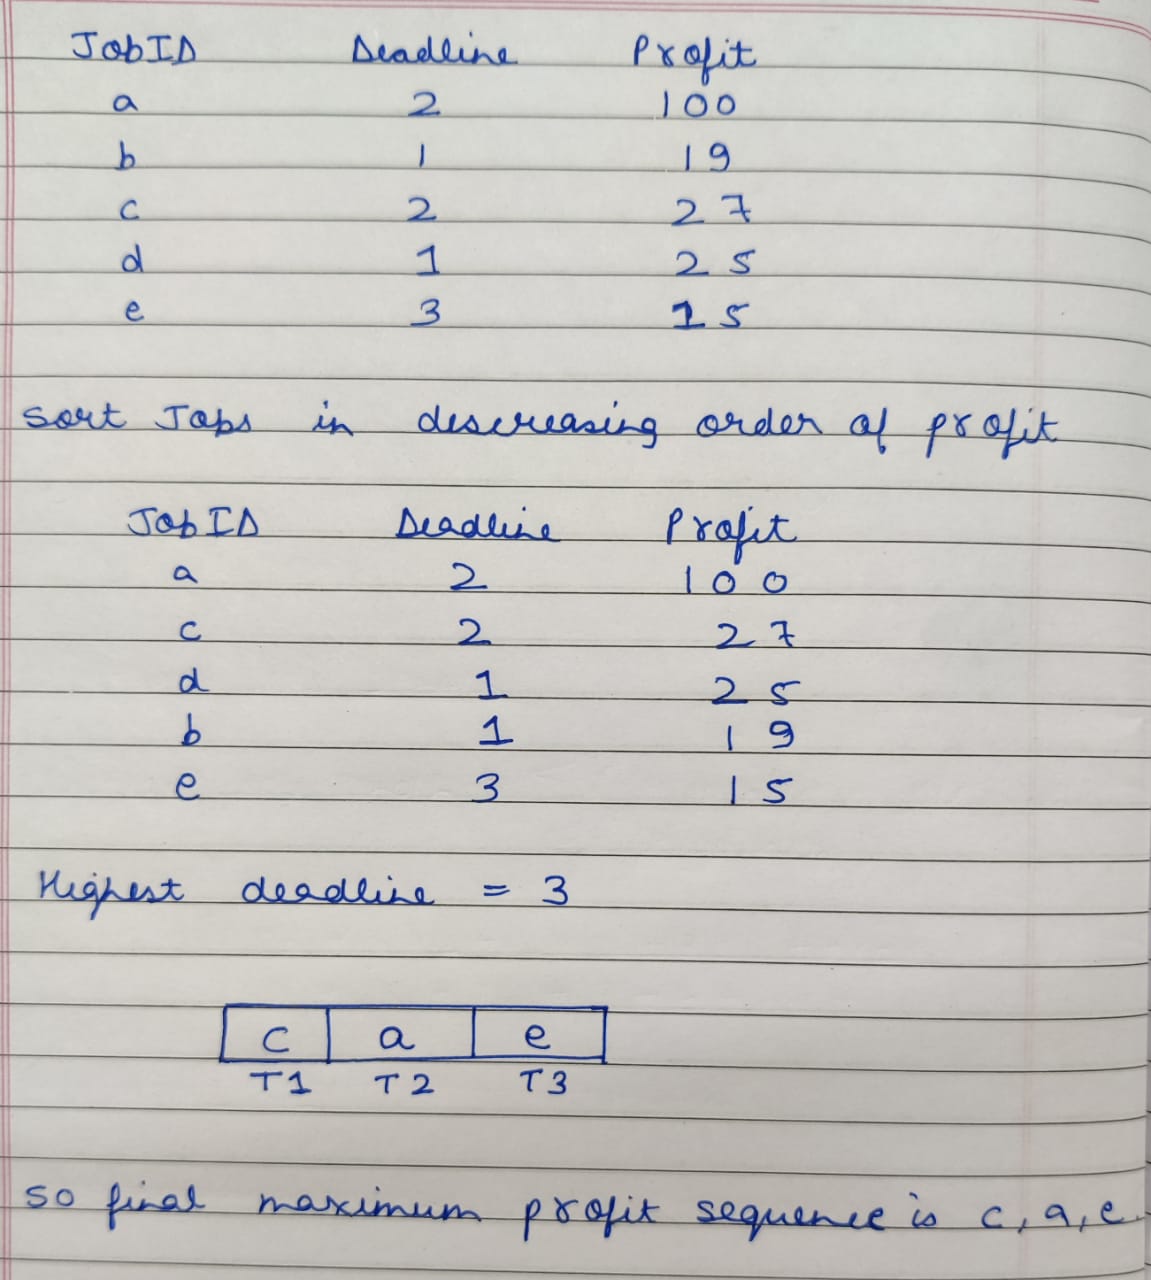 JobID Deadline Profit
a 2 100
b 1 19
c 2 27
d 1 25
e 3 15
Sort Jobs in descreasing order of profit
JobID Deadline Profit
a 2 100
c 2 27
d 1 25
b 1 19
e 3 15
Highest deadline = 3
c a e
T1 T2 T3
so final maximum profit sequence is c, a, e.